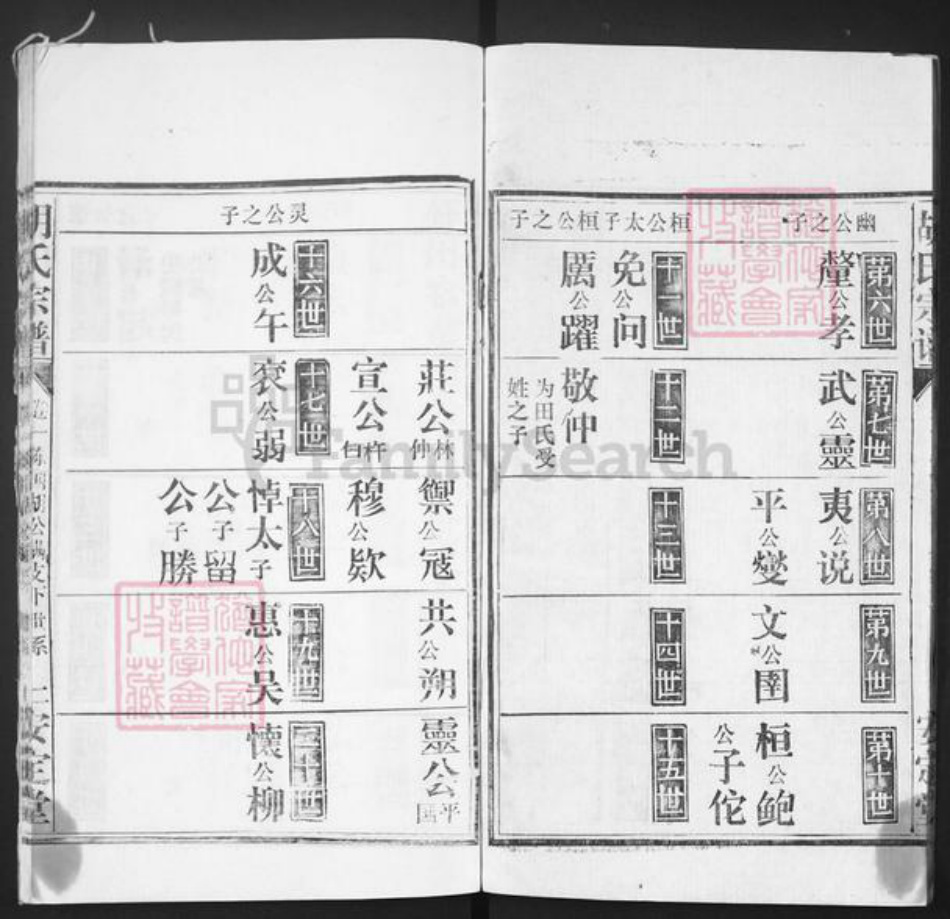 胡氏宗譜
安定堂
幽公之子
第六世
釐公孝
第七世
武公靈
第八世
夷公说
平公燮
第九世
文公圉
第十世
桓公鲍
公子佗
桓公太子
桓公之子
十一世
免公问
厲公躍
十二世
敬仲
为田氏受
姓之子
十三世
十四世
十五世
莊公林
仲
宣公杵
臼
禦公冦
穆公款
共公朔
靈公平
国
灵公之子
十六世
成公午
十七世
哀公弱
十八世
悼太子
公子留
公子勝
十九世
惠公吴
二十世
懷公柳
胡氏宗譜
卷一
安定堂
FamilySearch
譜學會
收藏
譜學會
收藏